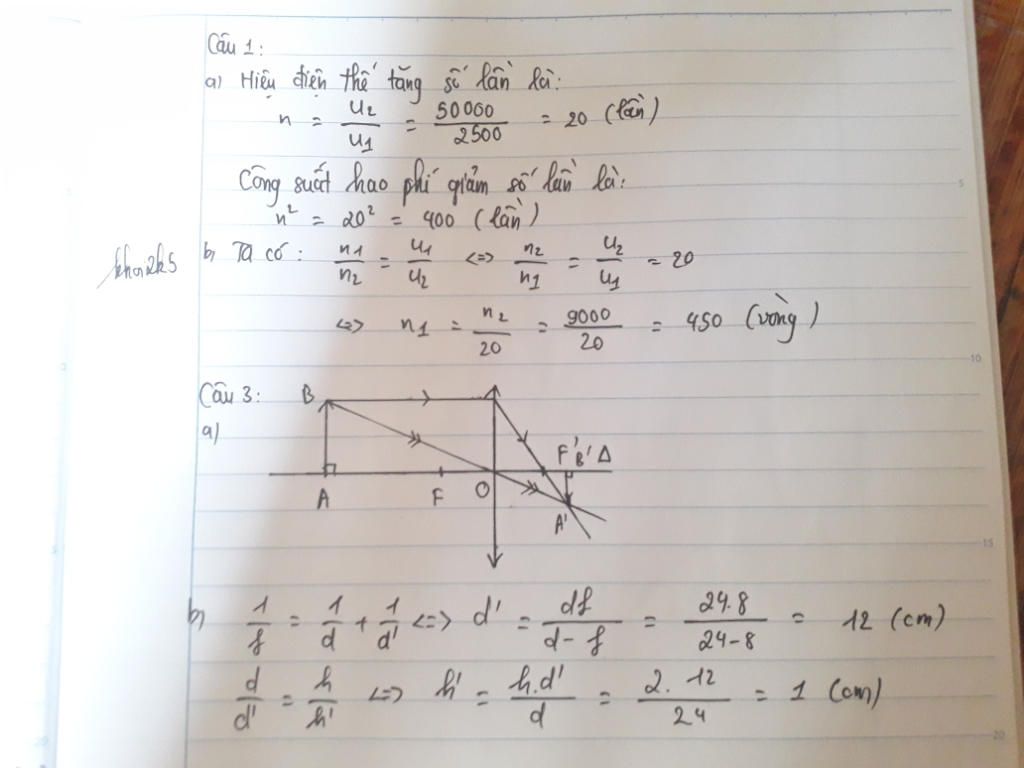 Câu 1:
a) Hiệu điện thế tăng số lần là:
n = U2/U1 = 50000/2500 = 20 (lần)
Công suất hao phí giảm số lần là:
n² = 20² = 400 (lần)
khoi2k5
b) Ta có: n1/n2 = U1/U2 <=> n2/n1 = U2/U1 = 20
<=> n1 = n2/20 = 9000/20 = 450 (vòng)
Câu 3:
a)
B
F' B' Δ
A F O A'
b) 1/f = 1/d + 1/d' <=> d' = df/(d-f) = 24.8/(24-8) = 12 (cm)
d/d' = h/h' <=> h' = h.d'/d = 2.12/24 = 1 (cm)
5
10
15
20